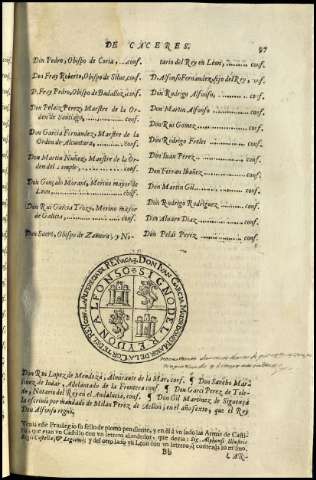 DE CACERES.
97
Don Pedro, Obispo de Coria ... conf.
Don Fray Roberto, Obispo de Silue, conf.
D. Fray Pedro, Obispo de Badalloz, conf.
Don Pelaiz Perez, Maestre de la Or-
den de Santiago, ... conf.
Don Garcia Fernandez, Maestre de la
Orden de Alcantara, ... conf.
Don Martin Nuñez, Maestre de la Or-
den del Temple, ... conf.
Don Gonçalo Morant, Merino mayor de
Leon, ... conf.
Don Rui Garcia Troço, Merino mayor
de Galicia, ... conf.
Don Suero, Obispo de Zamora, y No-
tario del Rey en Leon, ... conf.
D. Alfonso Fernandez, fijo del Rey, conf.
Don Rodrigo Alfonso, ... conf.
Don Martin Alfonso, ... conf.
Don Rui Gomez ... conf.
Don Rodrigo Frolez ... conf.
Don Iuan Perez ... conf.
Don Ferran Ibañez ... conf.
Don Martin Gil ... conf.
Don Rodrigo Rodriguez ... conf.
Don Aluaro Diaz ... conf.
Don Pelai Perez ... conf.
SIGNO DEL REY DON ALFONSO
Don Rui Lopez de Mendoça, Almirante de la Mar, conf. ¶ Don Sancho Mar-
tinez de Iodar, Adelantado de la Frontera conf. ¶ Don Garci Perez de Tole-
do, Notario del Rey en el Andalucia, conf. ¶ Don Gil Martinez de Siguença
la escriuio por mandado de Milan Perez de Aellon, en el año sexto, que el Rey
Don Alfonso regnò.
Tenia este Priuilegio su sello de plomo pendiente, y en él à vn lado las Armas de Casti-
lla, que eran vn Castillo con vn letrero alrededor, que dezia: Sig. Alphonsi Illustris
Regis Castellæ, & Legionis; y del otro lado vn Leon con vn letrero,
Bb
CAR-